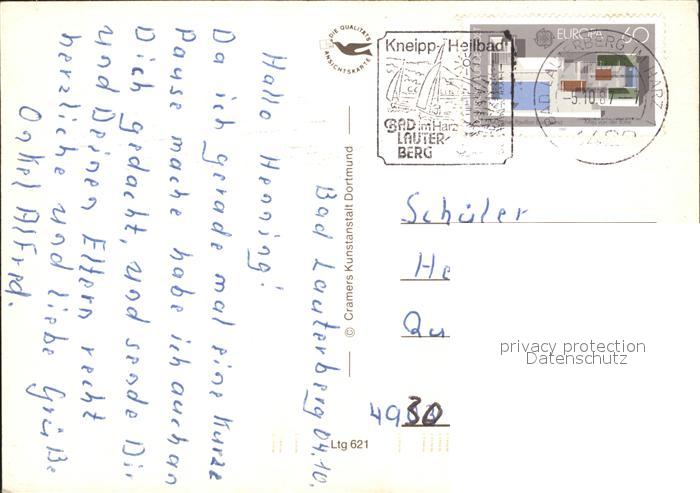 Bad Lauterberg 04.10.
Hallo Henning!
Da ich gerade mal eine Kurze
Pause mache habe ich auch an
Dich gedacht, und sende Dir
und Deinen Eltern recht
herzliche und liebe Grüße
Onkel Alfred.
DIE QUALITÄTS
ANSICHTSKARTE
© Cramers Kunstanstalt Dortmund
Ltg 621
Kneipp-Heilbad
BAD im Harz
LAUTER-
BERG
EUROPA 60
BAD LAUTERBERG IM HARZ
-5.10.87
Schüler
He
Qu
30
privacy protection
Datenschutz